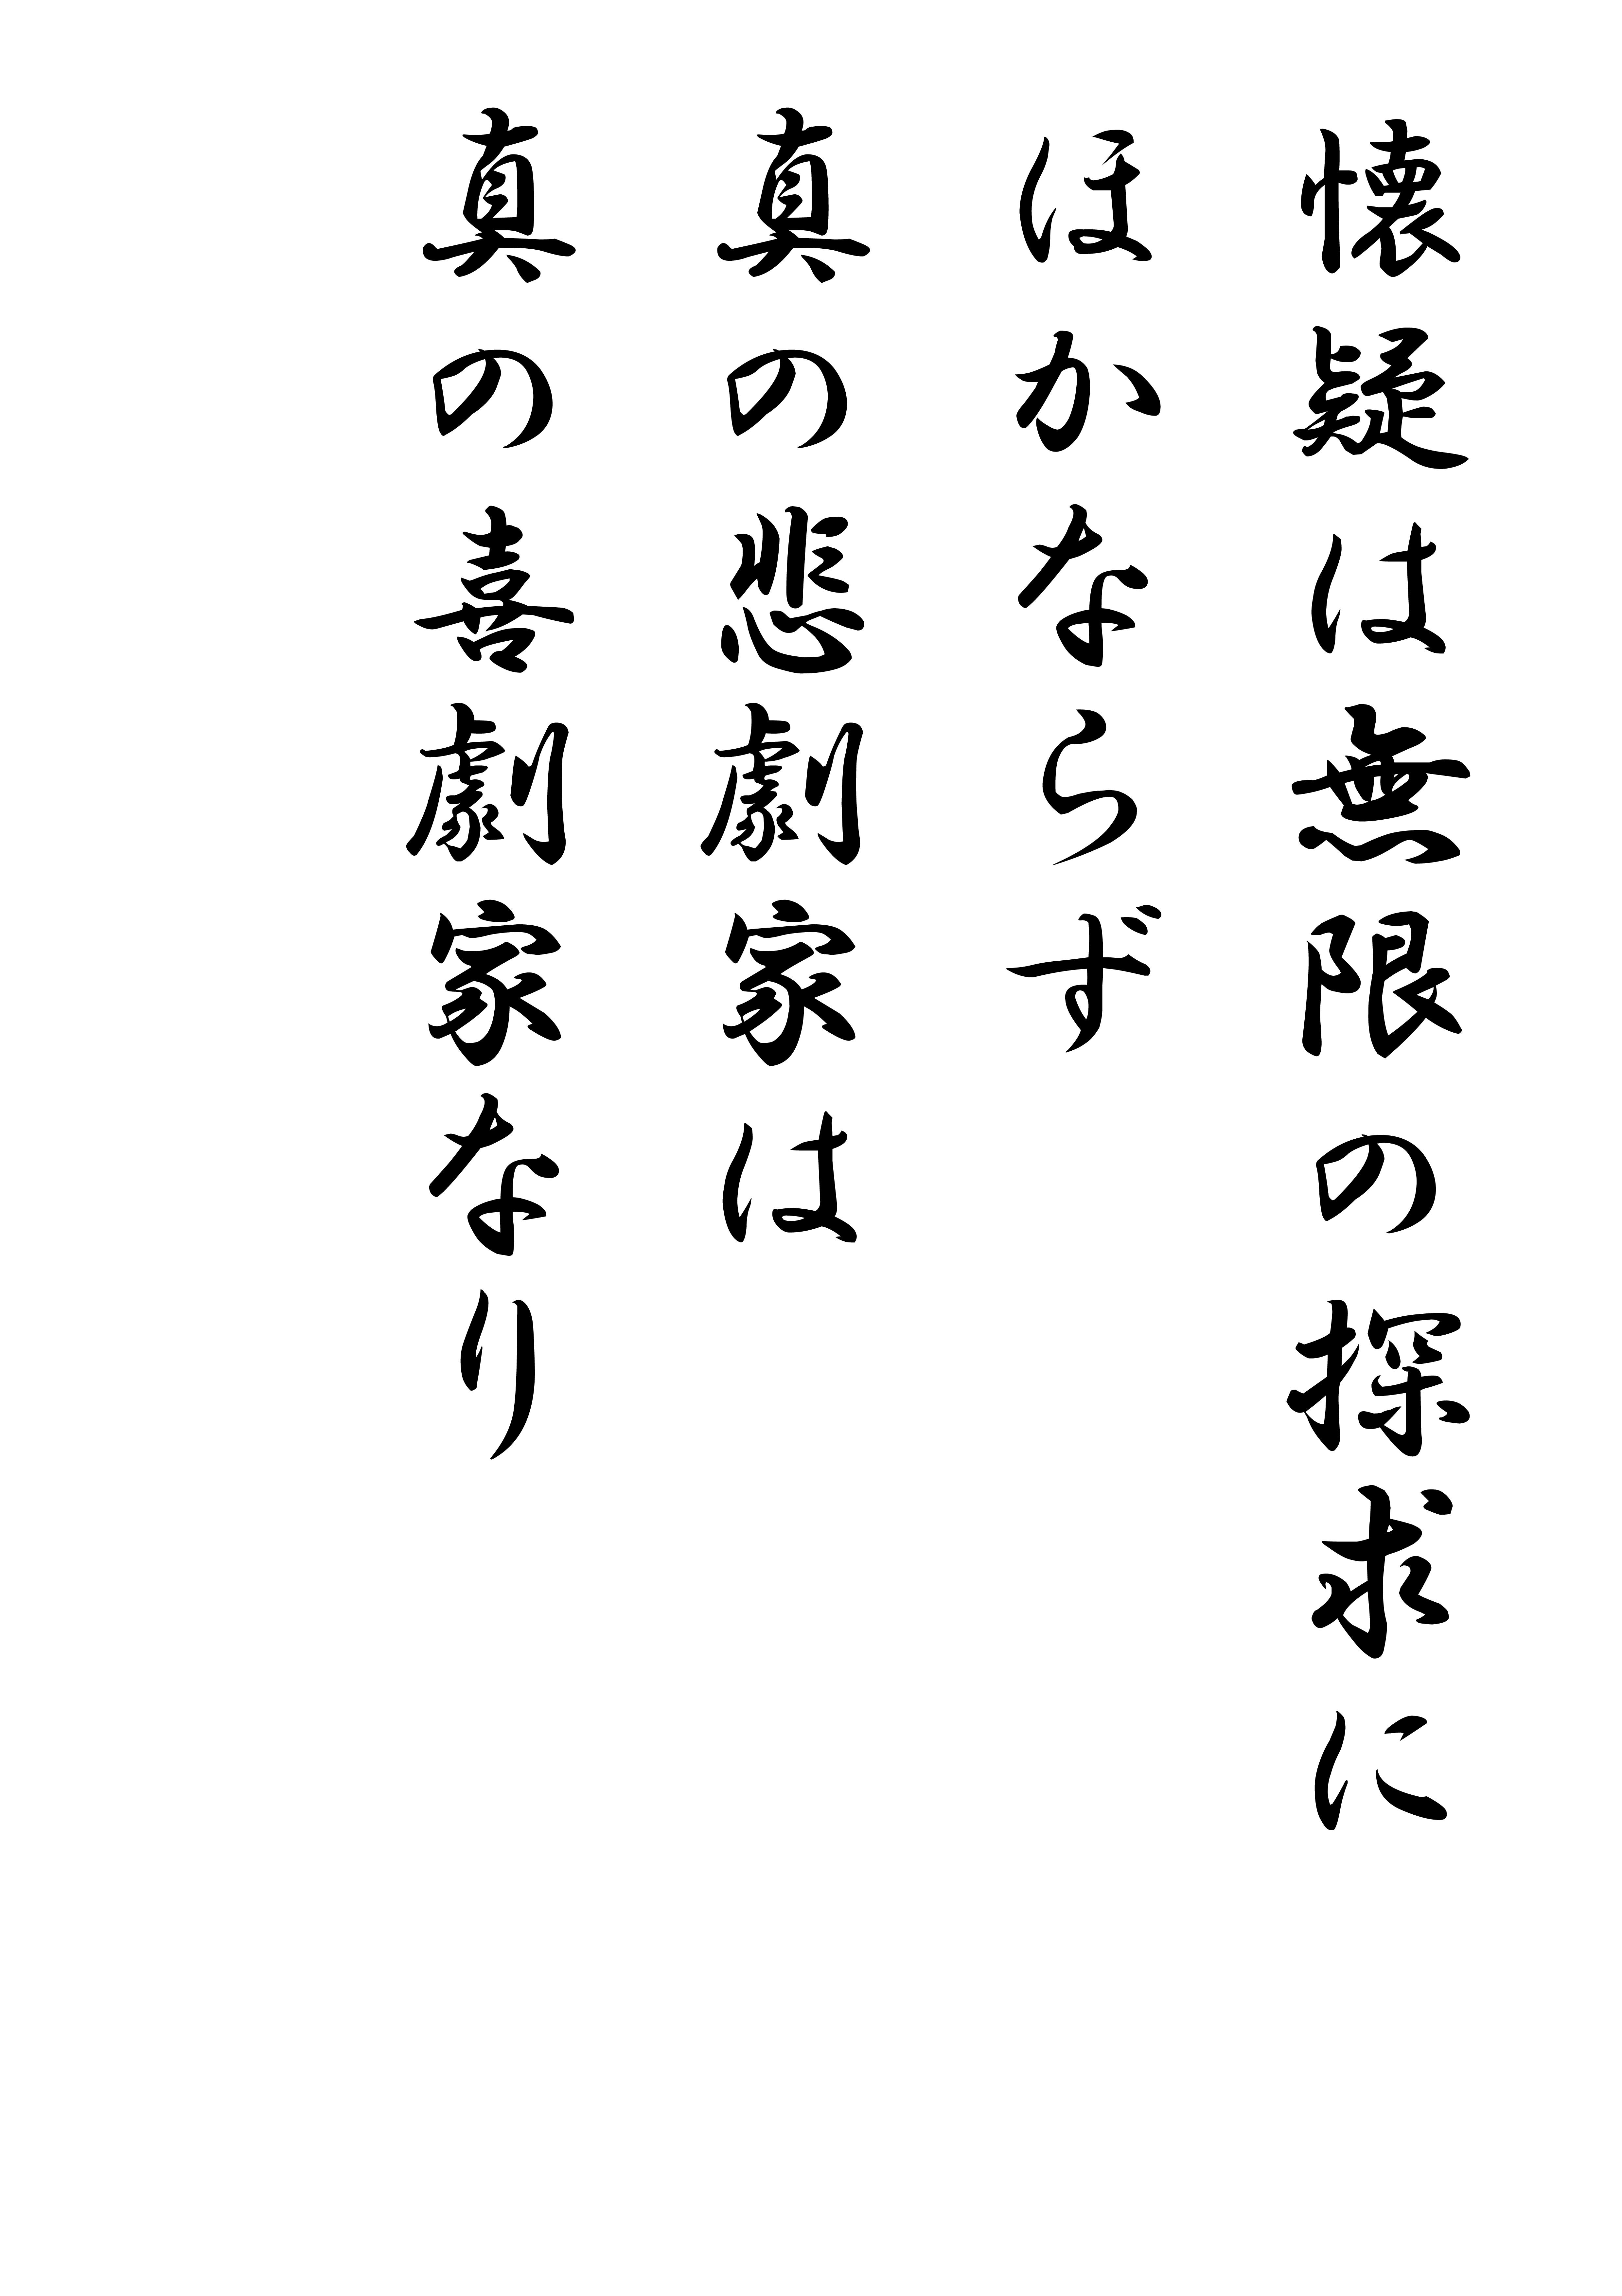 懐疑は無限の探求に
ほかならず
真の悲劇家は
真の喜劇家なり